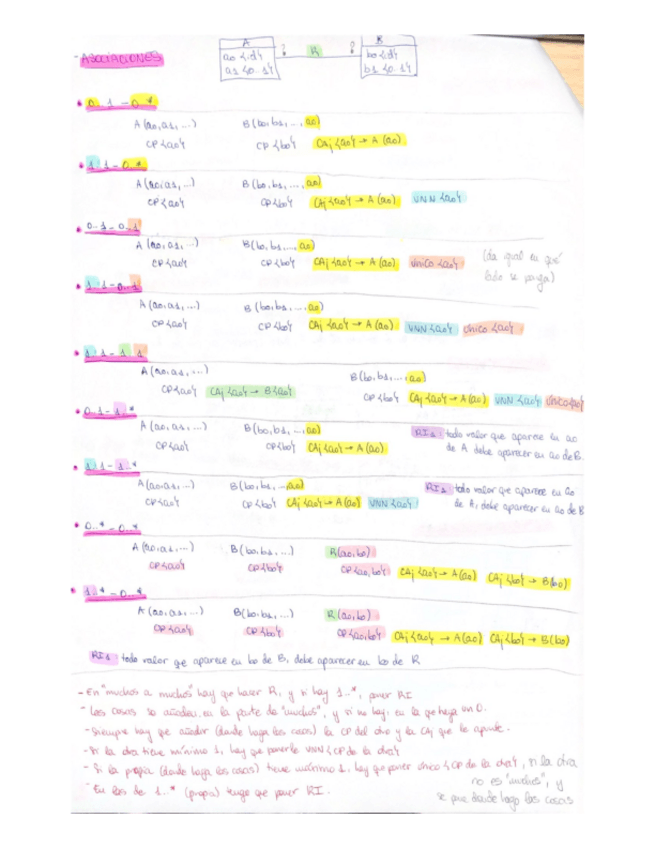 - ASOCIACIONES
A
a0 {id}
a1 {0..1}
?
R
?
B
b0 {id}
b1 {0..1}
• 0..1 - 0..*
A (a0, a1, ...) B (b0, b1, ..., a0)
CP {a0} CP {b0} CAj {a0} → A (a0)
• 1..1 - 0..*
A (a0, a1, ...) B (b0, b1, ..., a0)
CP {a0} CP {b0} CAj {a0} → A (a0) VNN {a0}
• 0..1 - 0..1
A (a0, a1, ...) B (b0, b1, ..., a0)
CP {a0} CP {b0} CAj {a0} → A (a0) único {a0} (da igual en qué
lado se ponga)
• 1..1 - 0..1
A (a0, a1, ...) B (b0, b1, ..., a0)
CP {a0} CP {b0} CAj {a0} → A (a0) VNN {a0} único {a0}
• 1..1 - 1..1
A (a0, a1, ...) B (b0, b1, ..., a0)
CP {a0} CAj {a0} → B {a0} CP {b0} CAj {a0} → A (a0) VNN {a0} único {a0}
• 0..1 - 1..*
A (a0, a1, ...) B (b0, b1, ..., a0) RI1: todo valor que aparece en a0
CP {a0} CP {b0} CAj {a0} → A (a0) de A debe aparecer en a0 de B
• 1..1 - 1..*
A (a0, a1, ...) B (b0, b1, ..., a0) RI1: todo valor que aparece en a0
CP {a0} CP {b0} CAj {a0} → A (a0) VNN {a0} de A, debe aparecer en a0 de B
• 0..* - 0..*
A (a0, a1, ...) B (b0, b1, ...) R (a0, b0)
CP {a0} CP {b0} CP {a0, b0} CAj {a0} → A (a0) CAj {b0} → B (b0)
• 1..* - 0..*
A (a0, a1, ...) B (b0, b1, ...) R (a0, b0)
CP {a0} CP {b0} CP {a0, b0} CAj {a0} → A (a0) CAj {b0} → B (b0)
RI1: todo valor que aparece en b0 de B, debe aparecer en b0 de R
- En "muchos a muchos" hay que hacer R, y si hay 1..*, poner RI
- Las cosas se añaden en la parte de "muchos", y si no hay, en la que haya un 0.
- Siempre hay que añadir (donde haga las cosas) la CP del otro y la CAj que le apunte.
- Si la otra tiene mínimo 1, hay que ponerle VNN {CP de la otra}
- Si la propia (donde haga las cosas) tiene máximo 1, hay que poner único {CP de la otra}, si la otra
no es "muchos", y
se pone donde hago las cosas
- En los de 1..* (propia) tengo que poner RI.